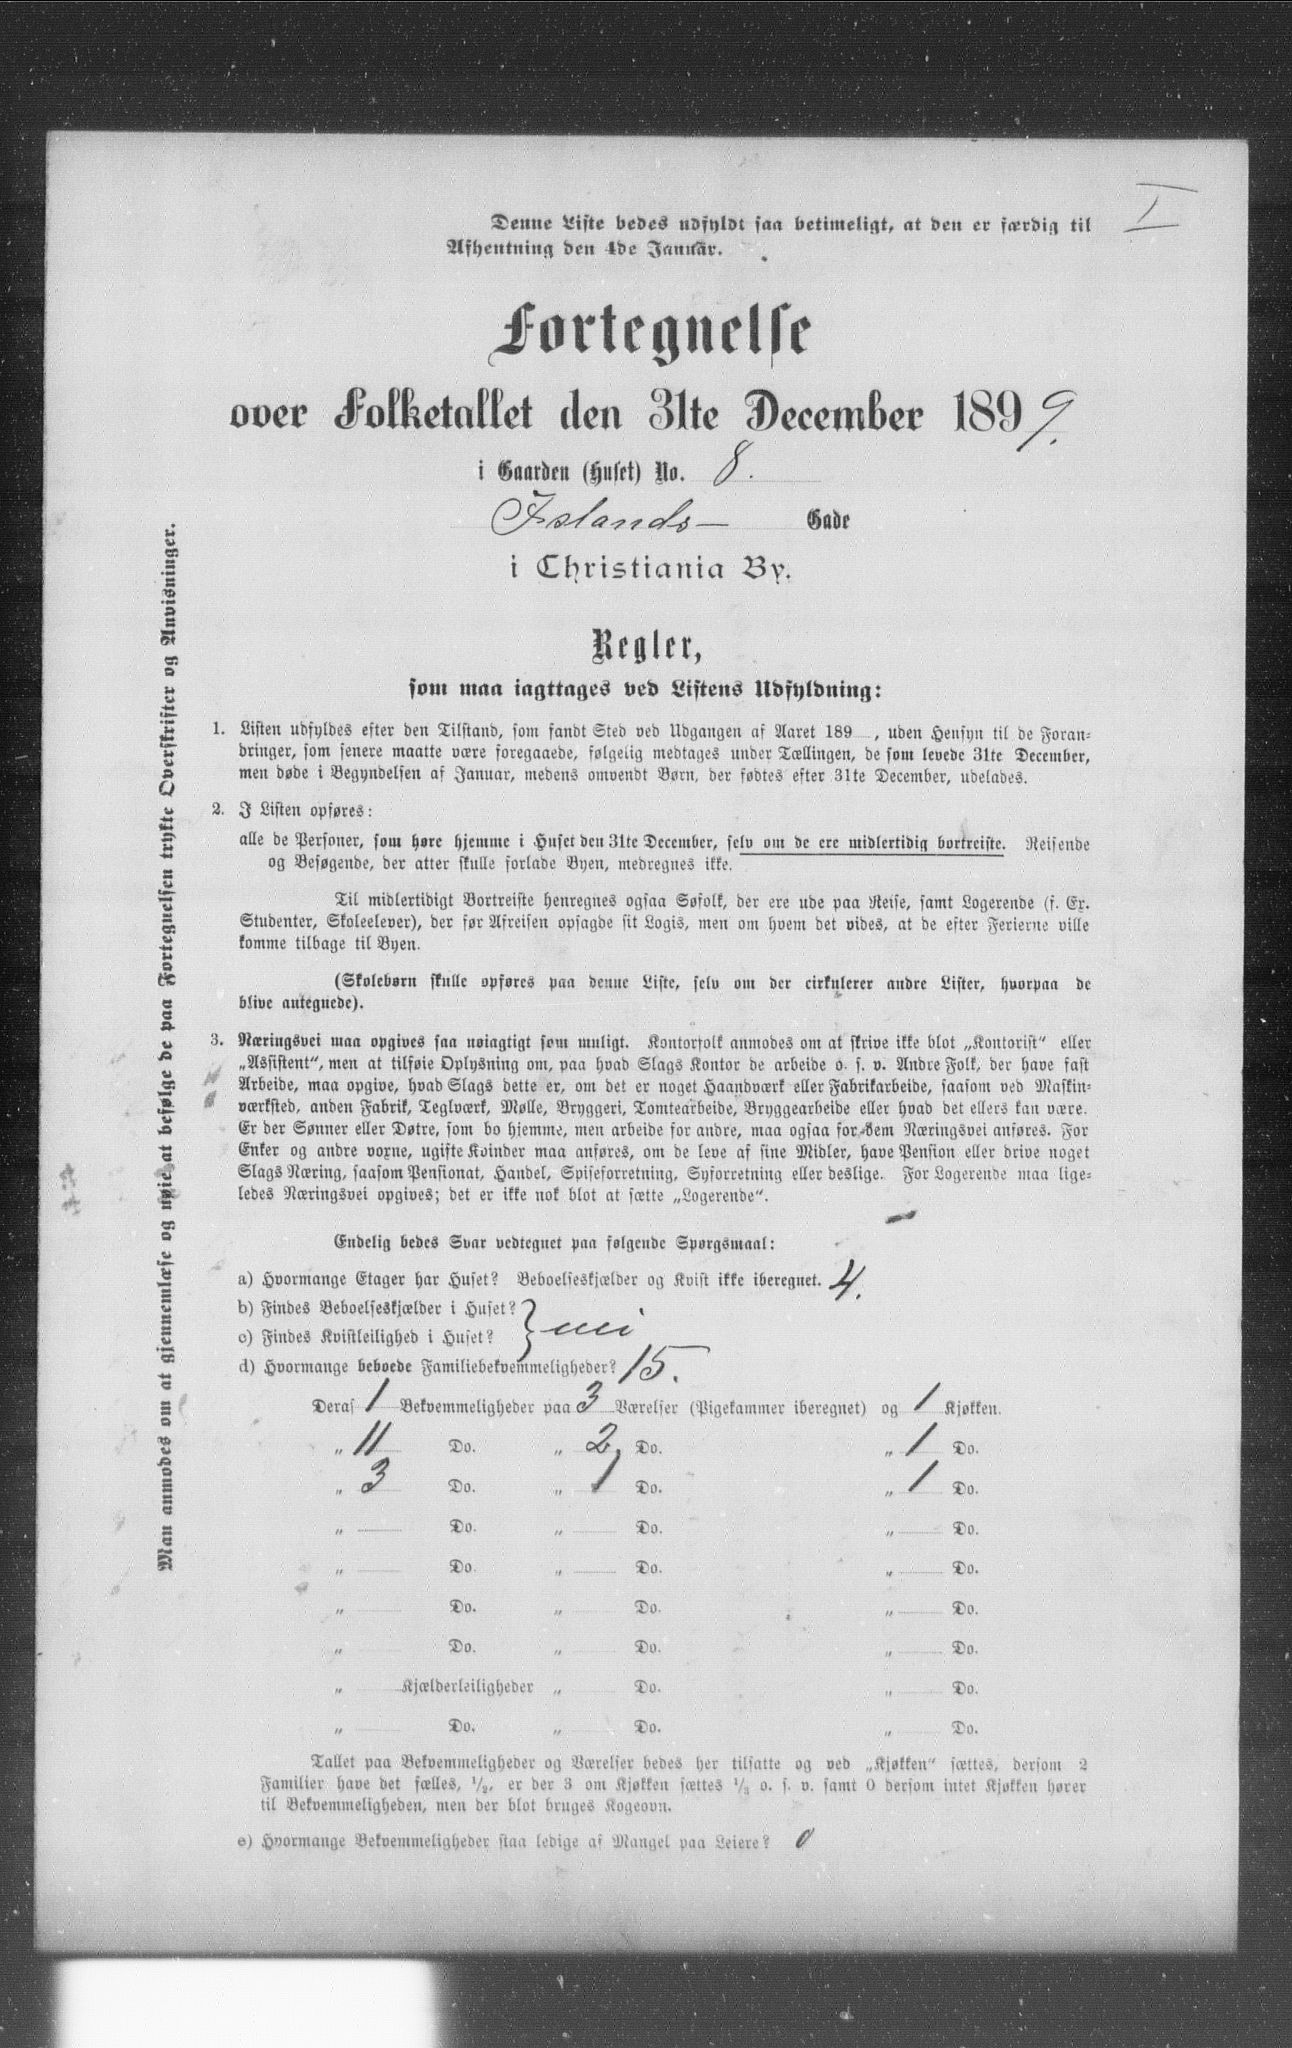 I
Denne Liste bedes udfyldt saa betimeligt, at den er færdig til
Afhentning den 4de Januar.
Fortegnelse
over Folketallet den 31te December 1899.
i Gaarden (Huset) No. 8.
Islands- Gade
i Christiania By.
Regler,
som maa iagttages ved Listens Udfyldning:
1. Listen udfyldes efter den Tilstand, som fandt Sted ved Udgangen af Aaret 189 , uden Hensyn til de Foran-
dringer, som senere maatte være foregaaede, følgelig medtages under Tællingen, de som levede 31te December,
men døde i Begyndelsen af Januar, medens omvendt Børn, der fødtes efter 31te December, udelades.
2. I Listen opføres:
alle de Personer, som høre hjemme i Huset den 31te December, selv om de ere midlertidig bortreiste. Reisende
og Besøgende, der atter skulle forlade Byen, medregnes ikke.
Til midlertidigt Bortreiste henregnes ogsaa Søfolk, der ere ude paa Reise, samt Logerende (f. Ex.
Studenter, Skoleelever), der før Afreisen opsagde sit Logis, men om hvem det vides, at de efter Ferierne ville
komme tilbage til Byen.
(Skolebørn skulle opføres paa denne Liste, selv om der cirkulerer andre Lister, hvorpaa de
blive antegnede).
3. Næringsvei maa opgives saa nøiagtigt som muligt. Kontorfolk anmodes om at skrive ikke blot „Kontorist“ eller
„Assistent“, men at tilføie Oplysning om, paa hvad Slags Kontor de arbeide o. s. v. Andre Folk, der have fast
Arbeide, maa opgive, hvad Slags dette er, om det er noget Haandværk eller Fabrikarbeide, saasom ved Maskin-
værksted, anden Fabrik, Teglværk, Mølle, Bryggeri, Tomtearbeide, Bryggearbeide eller hvad det ellers kan være.
Er der Sønner eller Døtre, som bo hjemme, men arbeide for andre, maa ogsaa for dem Næringsvei anføres. For
Enker og andre voxne, ugifte Kvinder maa anføres, om de leve af sine Midler, have Pension eller drive noget
Slags Næring, saasom Pensionat, Handel, Spiseforretning, Syforretning eller deslige. For Logerende maa lige-
ledes Næringsvei opgives; det er ikke nok blot at sætte „Logerende“.
Endelig bedes Svar vedtegnet paa følgende Spørgsmaal:
a) Hvormange Etager har Huset? Beboelseskjælder og Kvist ikke iberegnet. 4.
b) Findes Beboelseskjælder i Huset?
c) Findes Kvistleilighed i Huset? } nei
d) Hvormange beboede Familiebekvemmeligheder? 15.
Deraf 1 Bekvemmeligheder paa 3 Værelser (Pigekammer iberegnet) og 1 Kjøkken.
„ 11 Do. „ 2 Do. „ 1 Do.
„ 3 Do. „ 1 Do. „ 1 Do.
„ Do. „ Do. „ Do.
„ Do. „ Do. „ Do.
„ Do. „ Do. „ Do.
„ Do. „ Do. „ Do.
„ Kjælderleiligheder „ Do. „ Do.
„ Do. „ Do. „ Do.
Tallet paa Bekvemmeligheder og Værelser bedes her tilsatte og ved „Kjøkken“ sættes, dersom 2
Familier have det fælles, 1/2, er der 3 om Kjøkken sættes 1/3 o. s. v. samt 0 dersom intet Kjøkken hører
til Bekvemmeligheden, men der blot bruges Kogeovn.
e) Hvormange Bekvemmeligheder staa ledige af Mangel paa Leiere? 0
Man anmodes om at gjennemlæse og nøie at befølge de paa Fortegnelsen trykte Overskrifter og Anvisninger.